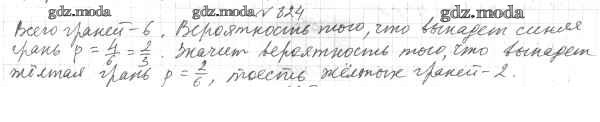 gdz.moda gdz.moda gdz.moda
№ 324
Всего граней - 6. Вероятность того, что выпадет синяя
грань p = 4/6 = 2/3. Значит вероятность того, что выпадет
жёлтая грань p = 2/6, тоесть жёлтых граней - 2.